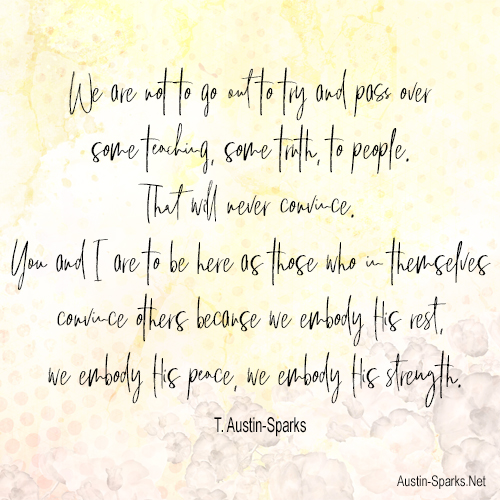 We are not to go out to try and pass over
some teaching, some truth, to people.
That will never convince.
You and I are to be here as those who in themselves
convince others because we embody His rest,
we embody His peace, we embody His strength.
T. Austin-Sparks
Austin-Sparks.Net